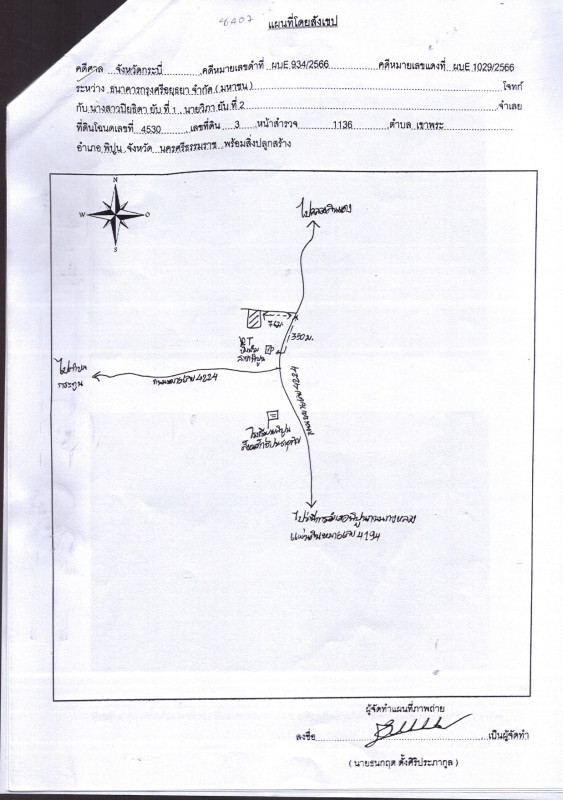 6407
แผนที่โดยสังเขป
คดีศาล จังหวัดกระบี่ คดีหมายเลขดำที่ ผบE 934/2566 คดีหมายเลขแดงที่ ผบE 1029/2566
ระหว่าง ธนาคารกรุงศรีอยุธยา จำกัด ( มหาชน ) โจทก์
กับ นางสาวปิยธิดา ยับ ที่ 1 , นายวิภา ยับ ที่ 2 จำเลย
ที่ดินโฉนดเลขที่ 4530 เลขที่ดิน 3 หน้าสำรวจ 1136 ตำบล เขาพระ
อำเภอ พิปูน จังหวัด นครศรีธรรมราช พร้อมสิ่งปลูกสร้าง
N
W O
S
ไป
350 ม.
PT
ไป
กระทูน
ถนนหมายเลข 4224
โรงเรียนพิปูน
ไป
หมายเลข 4194
ผู้จัดทำแผนที่ภาพถ่าย
ลงชื่อ เป็นผู้จัดทำ
( นายธนกฤต ตั้งศิริประภากูล )